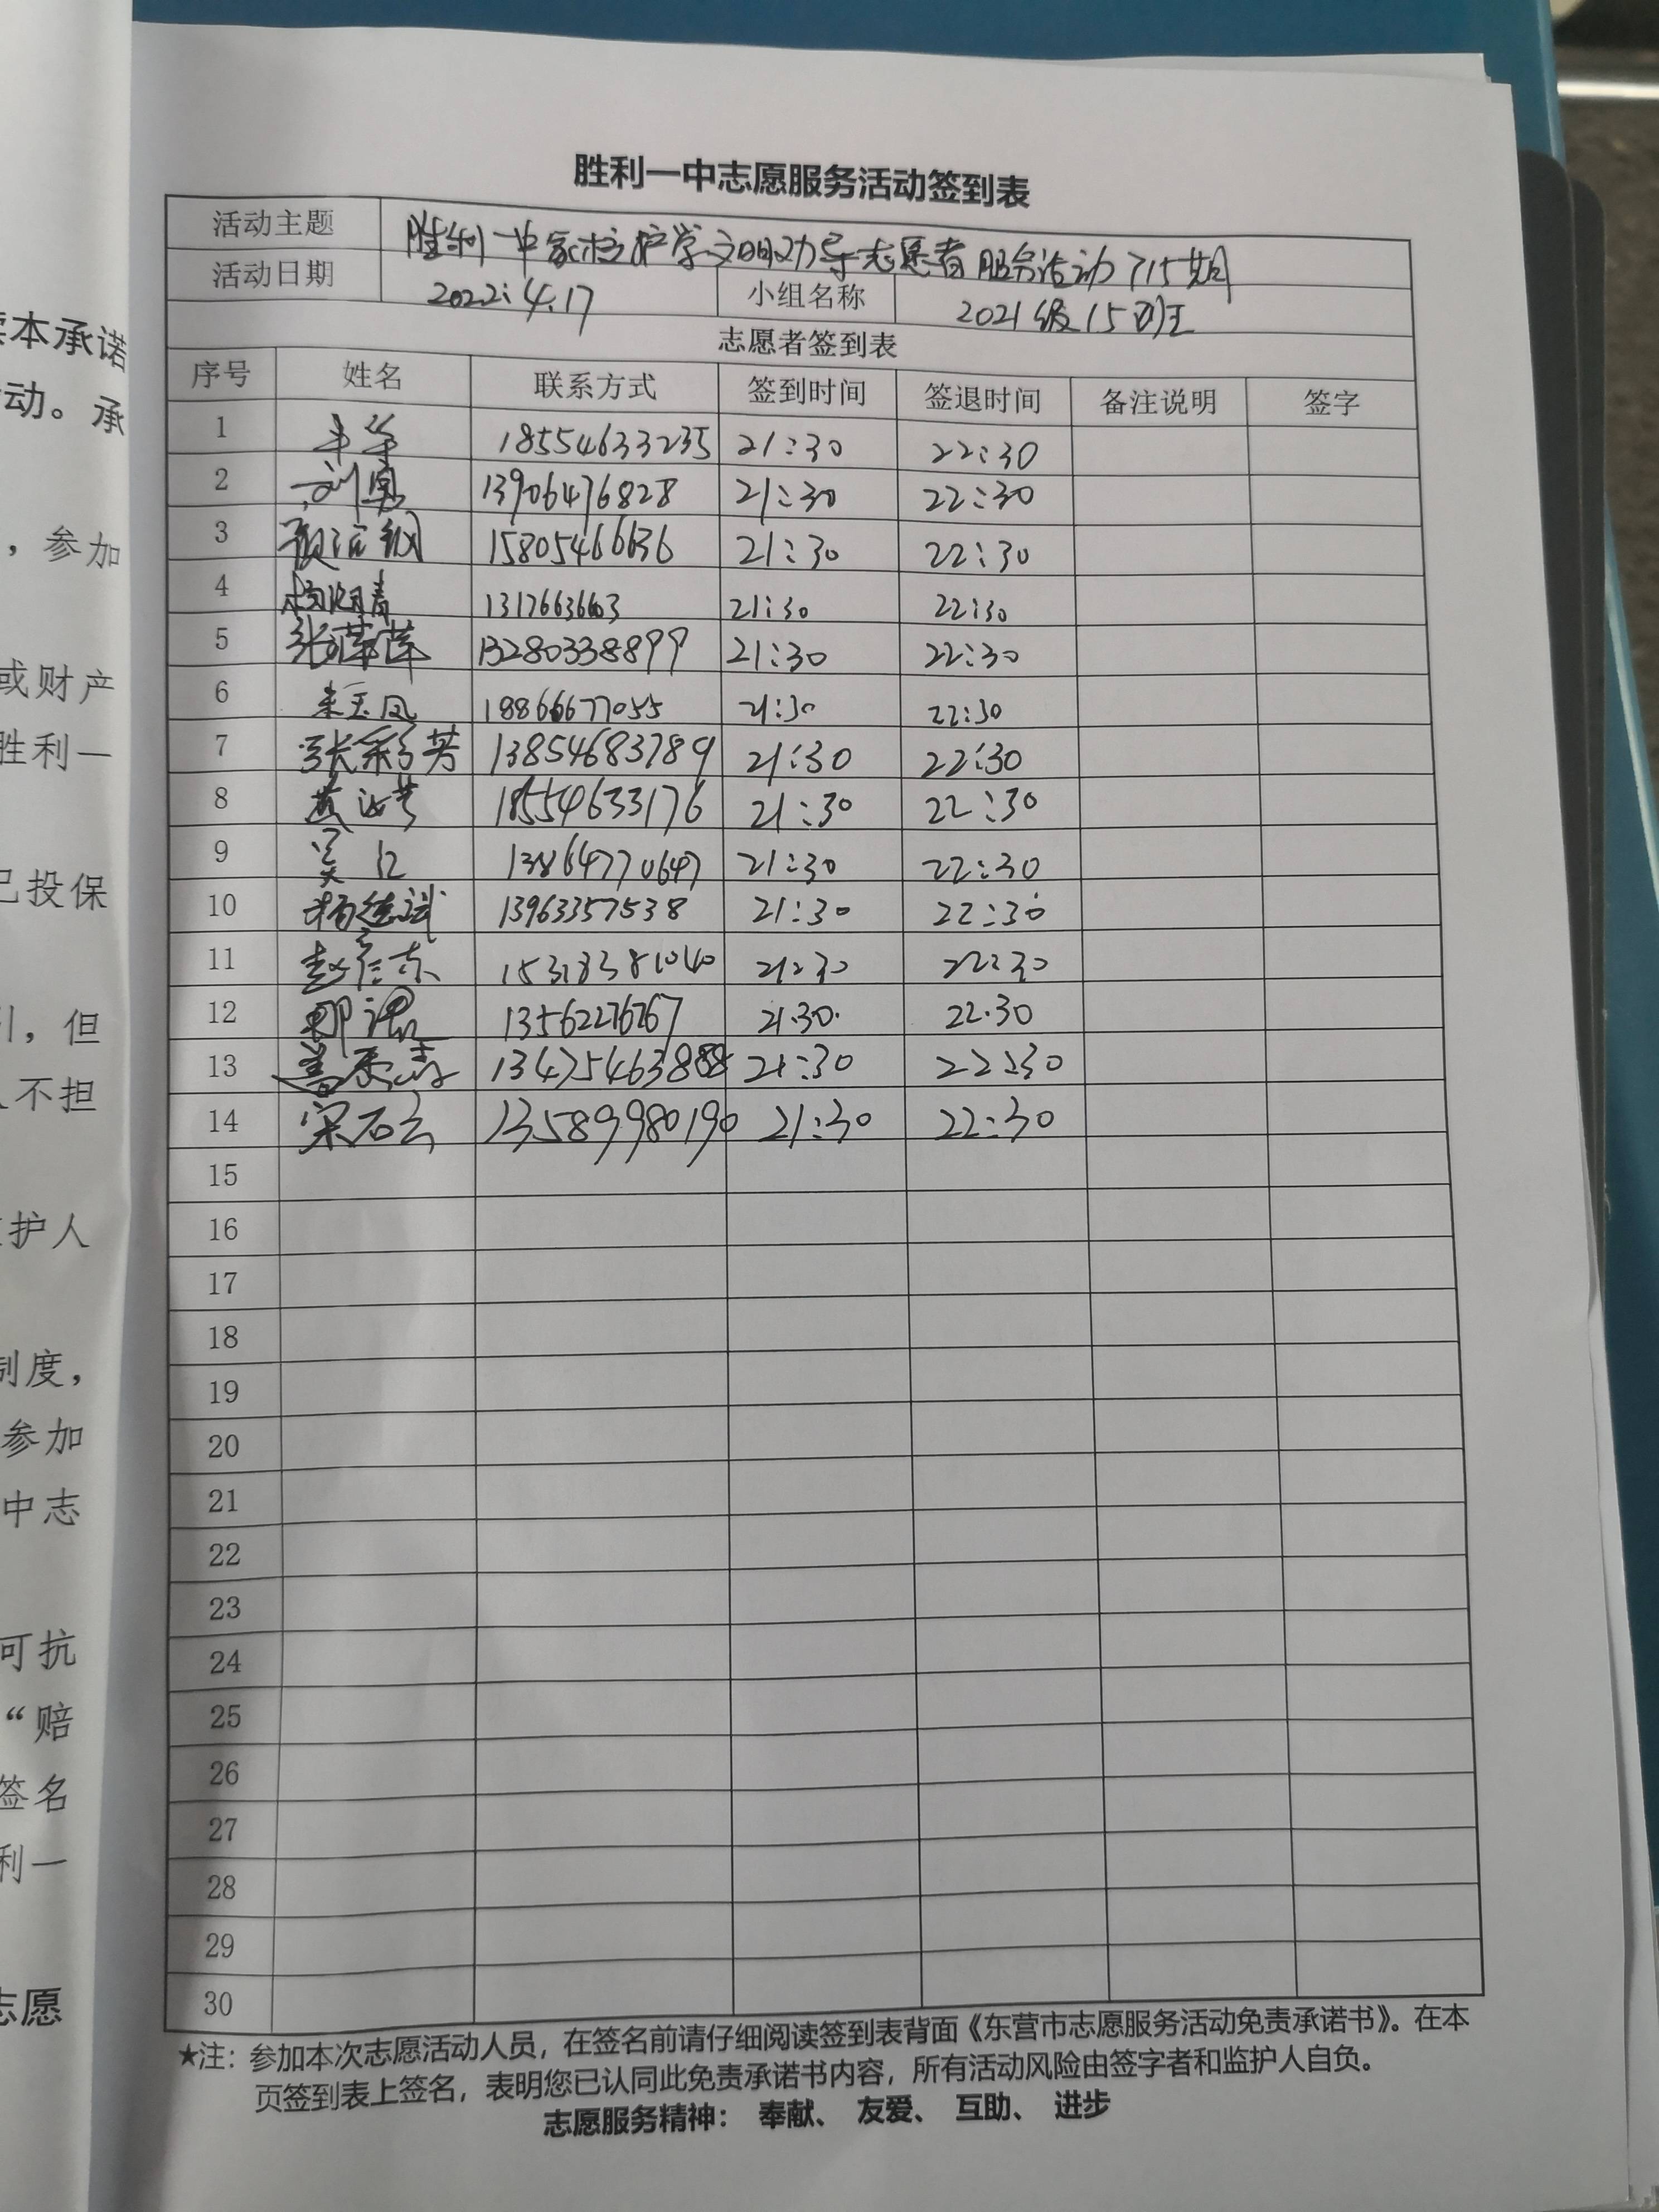 胜利一中志愿服务活动签到表
活动主题 胜利一中家校护学文明劝导志愿者服务活动715期
活动日期 2022.4.17 小组名称 2021级15班
志愿者签到表
序号 姓名 联系方式 签到时间 签退时间 备注说明 签字
1 18554633235 21:30 22:30
2 刘勇 13906476828 21:30 22:30
3 15805466636 21:30 22:30
4 1317663663 21:30 22:30
5 张萍萍 13280338899 21:30 22:30
6 来玉凤 18866677055 21:30 22:30
7 张彩芳 13854683789 21:30 22:30
8 18554633176 21:30 22:30
9 13864770647 21:30 22:30
10 13963357538 21:30 22:30
11 赵 东 15318381040 21:30 22:30
12 13562276767 21.30. 22.30
13 21:30 22:30
14 宋石云 13589980190 21:30 22:30
15
16
17
18
19
20
21
22
23
24
25
26
27
28
29
30
★注：参加本次志愿活动人员，在签名前请仔细阅读签到表背面《东营市志愿服务活动免责承诺书》。在本
页签到表上签名，表明您已认同此免责承诺书内容，所有活动风险由签字者和监护人自负。
志愿服务精神： 奉献、 友爱、 互助、 进步
本承诺
动。承
，参加
或财产
胜利一
已投保
，但
不担
护人
制度，
参加
中志
可抗
“赔
签名
利一
志愿